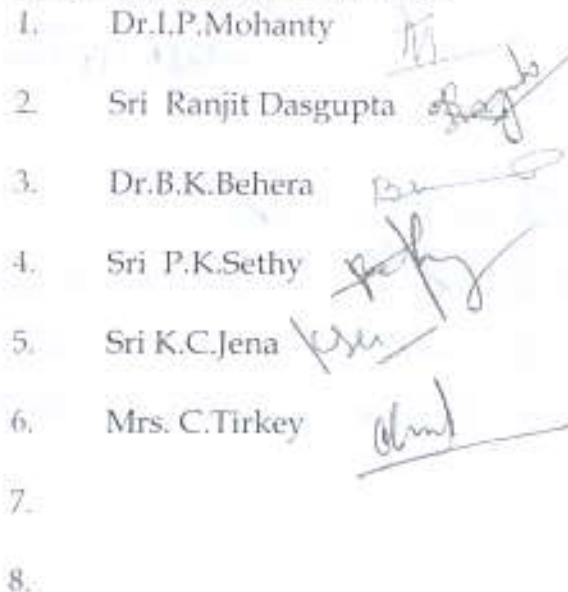 1. Dr.I.P.Mohanty
2. Sri Ranjit Dasgupta
3. Dr.B.K.Behera
4. Sri P.K.Sethy
5. Sri K.C.Jena
6. Mrs. C.Tirkey
7.
8.